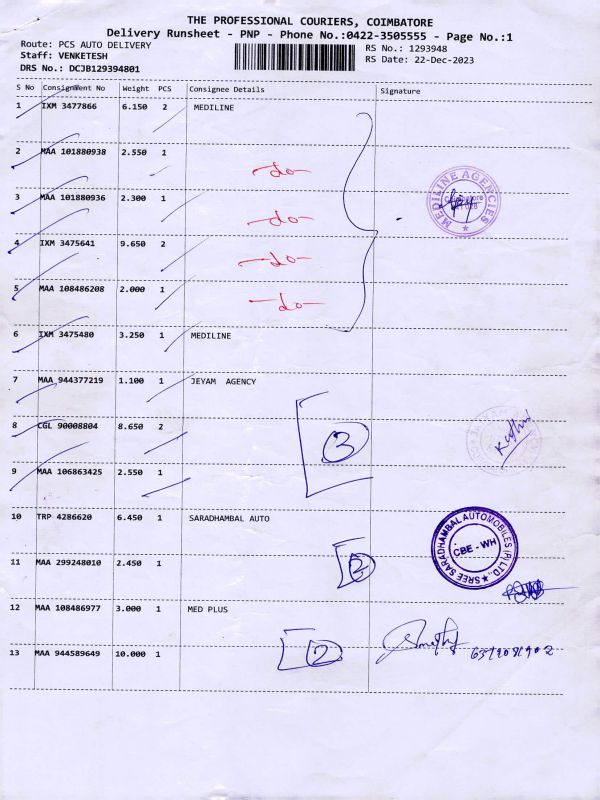 THE PROFESSIONAL COURIERS, COIMBATORE
Delivery Runsheet - PNP - Phone No.:0422-3505555 - Page No.:1
Route: PCS AUTO DELIVERY
RS No.: 1293948
Staff: VENKETESH
RS Date: 22-Dec-2023
DRS No.: DCJB129394801
S No Consignment No Weight PCS Consignee Details Signature
1 IXM 3477866 6.150 2 MEDILINE
2 MAA 101880938 2.550 1 -do-
3 MAA 101880936 2.300 1 -do-
MEDILINE AGENCIES
4 IXM 3475641 9.650 2 -do-
5 MAA 108486208 2.000 1 -do-
6 IXM 3475480 3.250 1 MEDILINE
7 MAA 944377219 1.100 1 JEYAM AGENCY
8 CGL 90008804 8.650 2 3
9 MAA 106863425 2.550 1
10 TRP 4286620 6.450 1 SARADHAMBAL AUTO
SREE SARADHAMBAL AUTOMOBILES (P) LTD.,
CBE - WH
11 MAA 299248010 2.450 1 2
12 MAA 108486977 3.000 1 MED PLUS
13 MAA 944589649 10.000 1 2